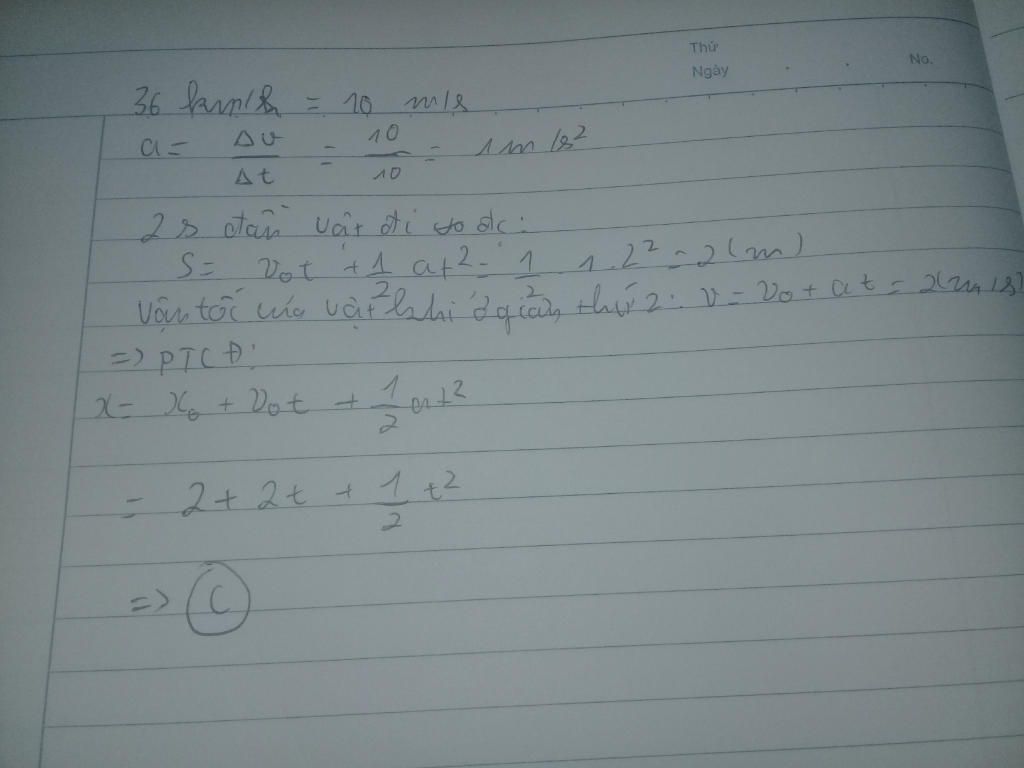 Thứ
Ngày
No.
36 km/h = 10 m/s
a = Δv/Δt = 10/10 = 1 m/s²
2s đầu vật đi đc:
S = v₀t + 1/2 at² = 1/2 . 1 . 2² = 2 (m)
Vận tốc của vật khi ở giây thứ 2: v = v₀ + at = 2 (m/s)
=> PTCĐ:
x = x₀ + v₀t + 1/2 at²
= 2 + 2t + 1/2 t²
=> C